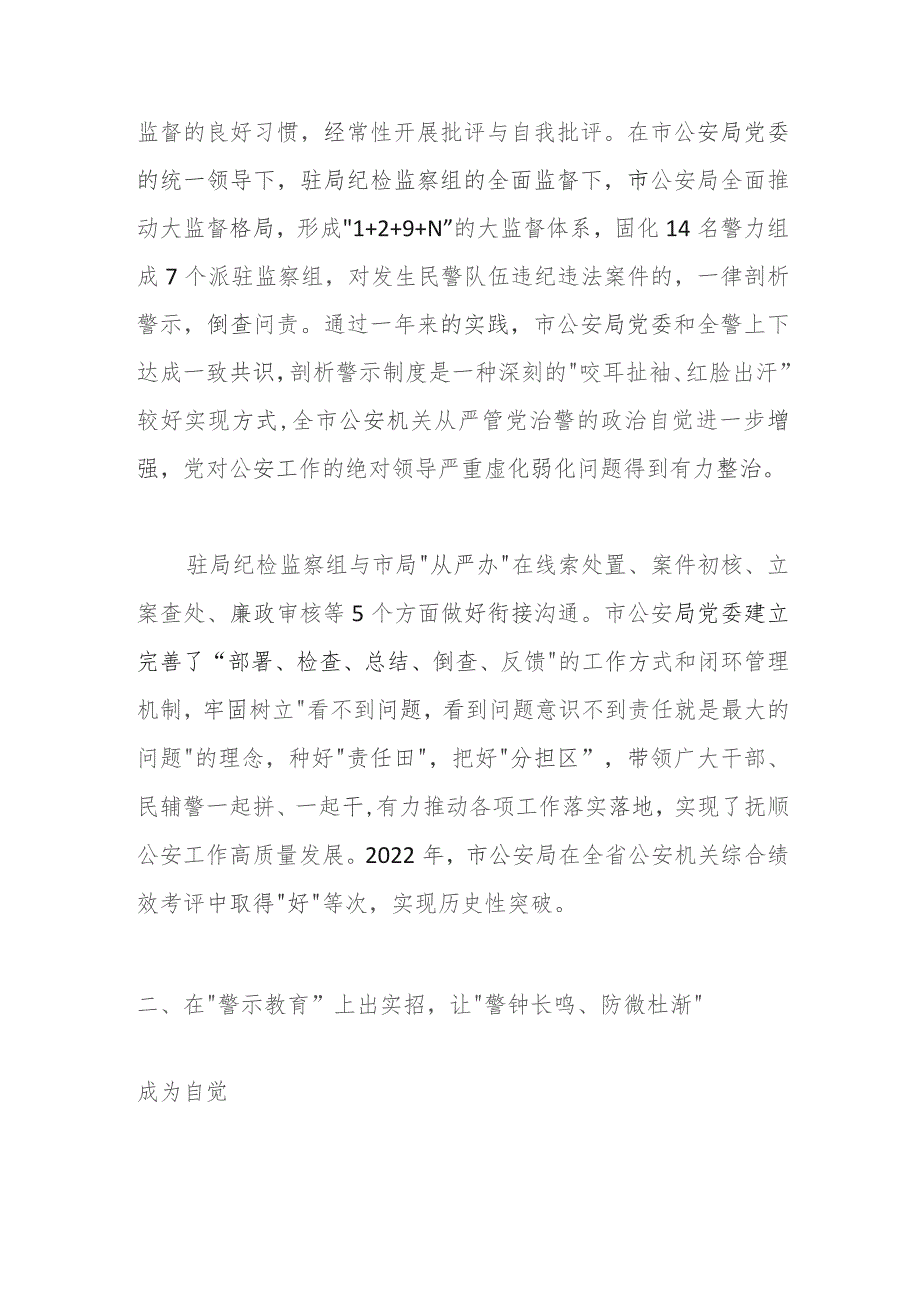 监督的良好习惯，经常性开展批评与自我批评。在市公安局党委
的统一领导下，驻局纪检监察组的全面监督下，市公安局全面推
动大监督格局，形成"1+2+9+N”的大监督体系，固化 14 名警力组
成 7 个派驻监察组，对发生民警队伍违纪违法案件的，一律剖析
警示，倒查问责。通过一年来的实践，市公安局党委和全警上下
达成一致共识,剖析警示制度是一种深刻的"咬耳扯袖、红脸出汗”
较好实现方式,全市公安机关从严管党治警的政治自觉进一步增
强，党对公安工作的绝对领导严重虚化弱化问题得到有力整治。
驻局纪检监察组与市局"从严办"在线索处置、案件初核、立
案查处、廉政审核等 5 个方面做好衔接沟通。市公安局党委建立
完善了“部署、检查、总结、倒查、反馈"的工作方式和闭环管理
机制，牢固树立"看不到问题，看到问题意识不到责任就是最大的
问题"的理念，种好"责任田"，把好"分担区”，带领广大干部、
民辅警一起拼、一起干,有力推动各项工作落实落地，实现了抚顺
公安工作高质量发展。2022 年，市公安局在全省公安机关综合绩
效考评中取得"好"等次，实现历史性突破。
二、在"警示教育”上出实招，让"警钟长鸣、防微杜渐"
成为自觉